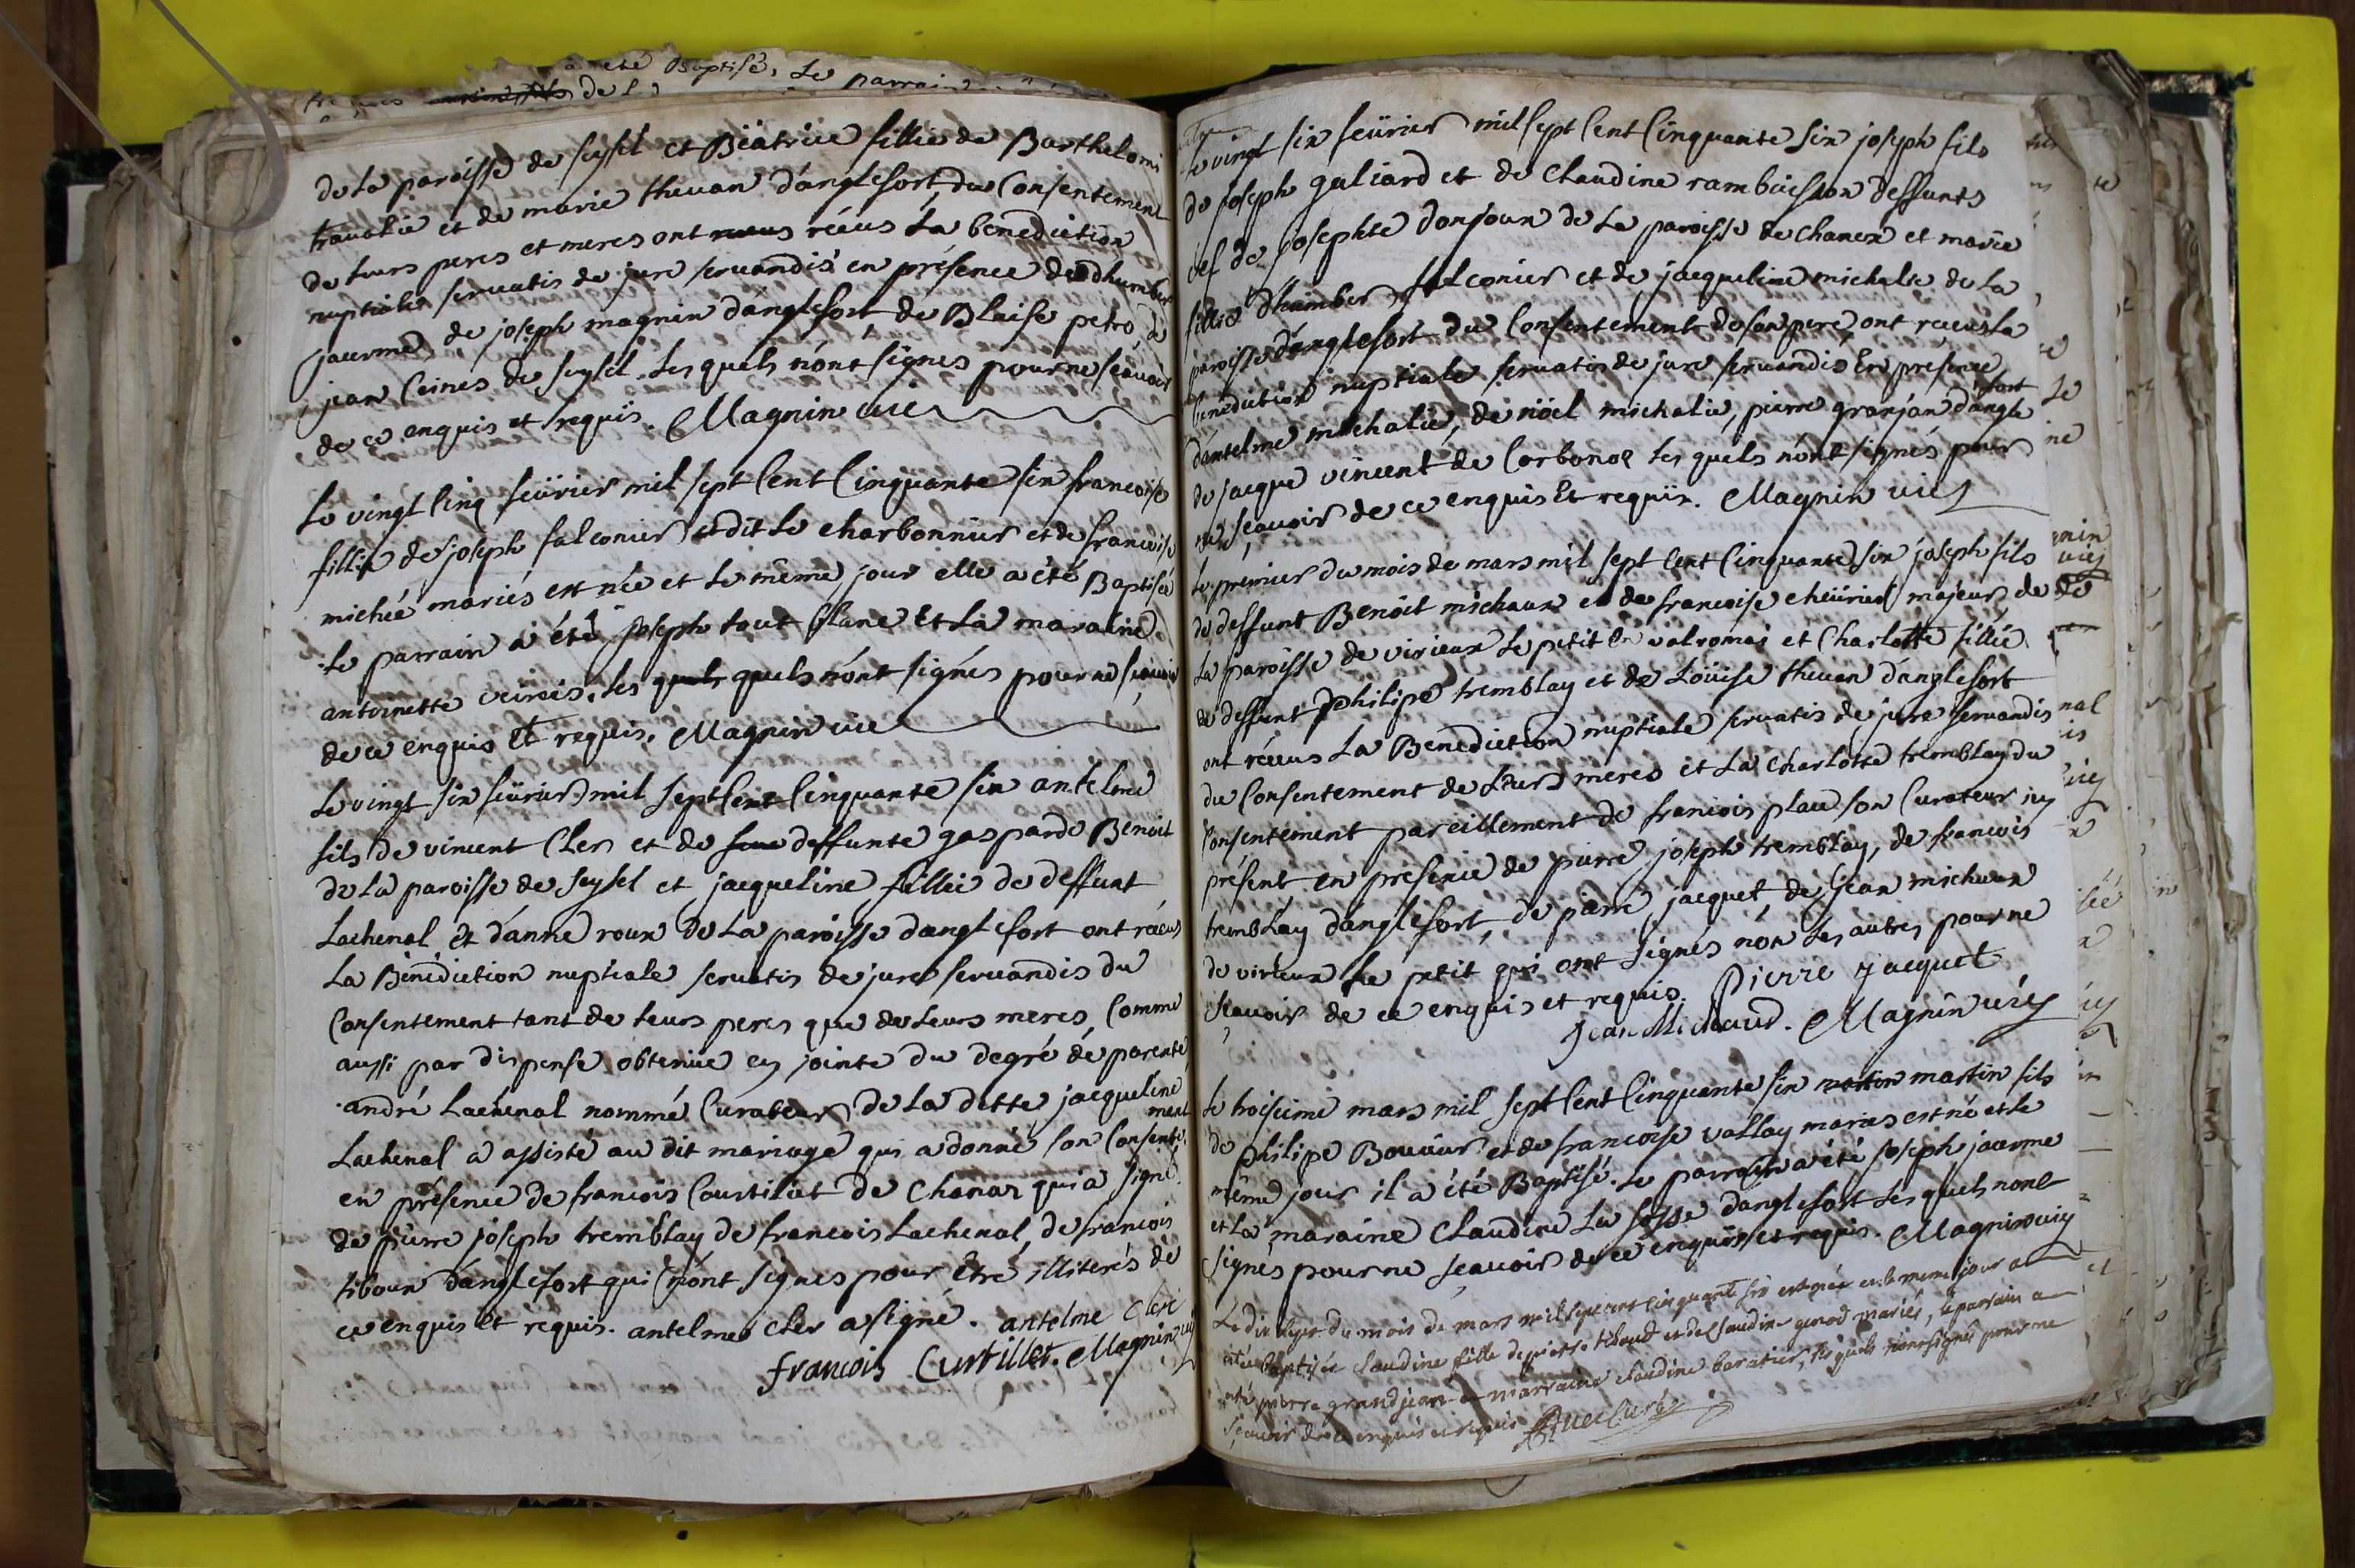 a eté Baptisé, Le parrain
de la paroisse de seysel et Béatrice fillie de Barthelomi
travalie et de marie thevan d'anglefort, du Consentement
de leurs peres et meres ont réçus la benediction
nuptiale servatis de jure servandis en présence de dhumber
jaurme, de joseph magnin d'anglefort, de Blaise petro, de
jean Ceines de seysel. Les quels n'ont signes pour ne sçavoir
de ce enquis et requis. Magnin vic
Le vingt Cinq feüvrier mil sept Cent Cinquante six francoise
fillie de joseph falconier dit le charbonnier et de francoise
michée mariés est née et le même jour elle a été Baptisée
Le parrain a été joseph tout blanc Et La maraine
antoinette veinés. Les quels n'ont signés pour ne sçavoir
de ce enquis Et requis. Magnin vic
Le vingt six feüvrier mil sept Cent Cinquante six antelme
fils de vincent Cler et de deffunte gasparde Benoit
de La paroisse de Seysel et jacqueline fillie de deffunt
Lachenal et d'anne roux de La paroisse d'anglefort ont réçus
La Bénédiction nuptiale servatis de jure servandis du
Consentement tant de leurs peres que de leurs meres, Comme
aussi par dispense obtenüe cy jointe du degré de parenté
andré Lachenal nommé Curateur de La ditte jacqueline
Lachenal a assisté au dit mariage qui a donné son Consente
ment
en présence de francois Courtiliet de Chanaz qui a signé
de pierre joseph tremblay de francois Lachenal, de francois
tiboux d'anglefort qui n'ont signes pour être illiterés de
ce enquis et réquis. antelme Cler a signé. antelme Clerc
francois Curtillet. Magnin vic
Le vingt six feüvrier mil sept Cent Cinquante six joseph fils
de joseph galiard et de Claudine rambuisson deffunts
vef de josephte donjoux de La paroisse de chanex et marie
fillie d'humber falconier et de jacqueline michalie de La
paroisse d'anglefort du Consentement de son pere, ont réçus la
benediction nuptiale servatis de jure servandis En présence
d'antelme michalie, de nöel michalie, pierre granjan d'angle
fort
de jacque vincent de Corbonoz Les quels n'ont signés pour
ne sçavoir de ce enquis Et requis. Magnin vic
Le premier du mois de mars mil sept Cent Cinquante six joseph fils
de deffunt Benoit michaux et de francoise cheüvrier majeur de
La paroisse de virieux Le petit en valromai et Charlotte fillie
de deffunt philipe tremblay et de Loüise thevan d'anglefort
ont réçus La Benediction nuptiale servatis de jure servandis
du Consentement de Leurs meres et La charlotte tremblay du
Consentement pareillement de francois plau son Curateur icy
présent en présence de pierre joseph tremblay, de francois
tremblay d'anglefort, de pierre jacquet, de jean michaux
de virieux Le petit qui ont signés non les autres pour ne
sçavoir de ce enquis et requis. Pierre jacquet
Jean Michaud. Magnin vic
Le troisieme mars mil sept Cent Cinquante six martin fils
de philipe Bouvier et de francoise vallay mariés est né et le
même jour il a été Baptisé. Le parrain a été joseph jaurme
et La maraine Claudine La fosse d'anglefort Les quels n'ont
signés pour ne sçavoir de ce enquis et requis. Magnin vic
Le dix sept du mois de mars mil sept cent cinquante six est née et le meme jour a
eté baptisée Claudine fille de pierre tiboud et de Claudine genod mariés, le parrain a
eté pierre grandjean et marraine claudine baratier, les quels n'ont signé pour ne
sçavoir de ce enquis et requis Curé